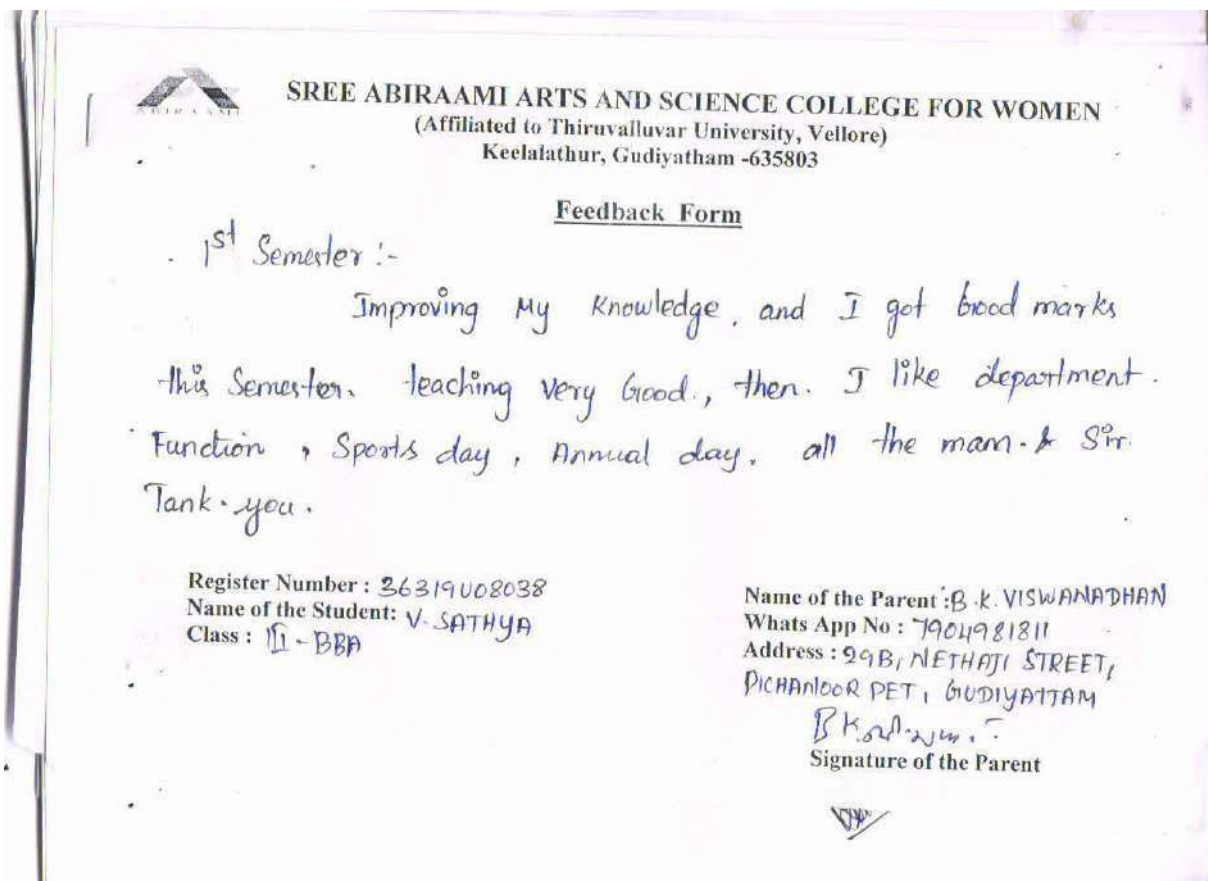 ABIRAAMI
SREE ABIRAAMI ARTS AND SCIENCE COLLEGE FOR WOMEN
(Affiliated to Thiruvalluvar University, Vellore)
Keelalathur, Gudiyatham -635803
Feedback Form
1st Semester :-
Improving My Knowledge, and I got Good marks
this Semester. teaching very Good., then. I like department.
Function , Sports day , Annual day. all the mam. & Sir.
Tank. you.
Register Number : 36319U08038
Name of the Student: V. SATHYA
Class : III - BBA
Name of the Parent :B.K. VISWANADHAN
Whats App No : 7904981811
Address : 29B, NETHAJI STREET,
PICHANOOR PET, GUDIYATTAM
Signature of the Parent